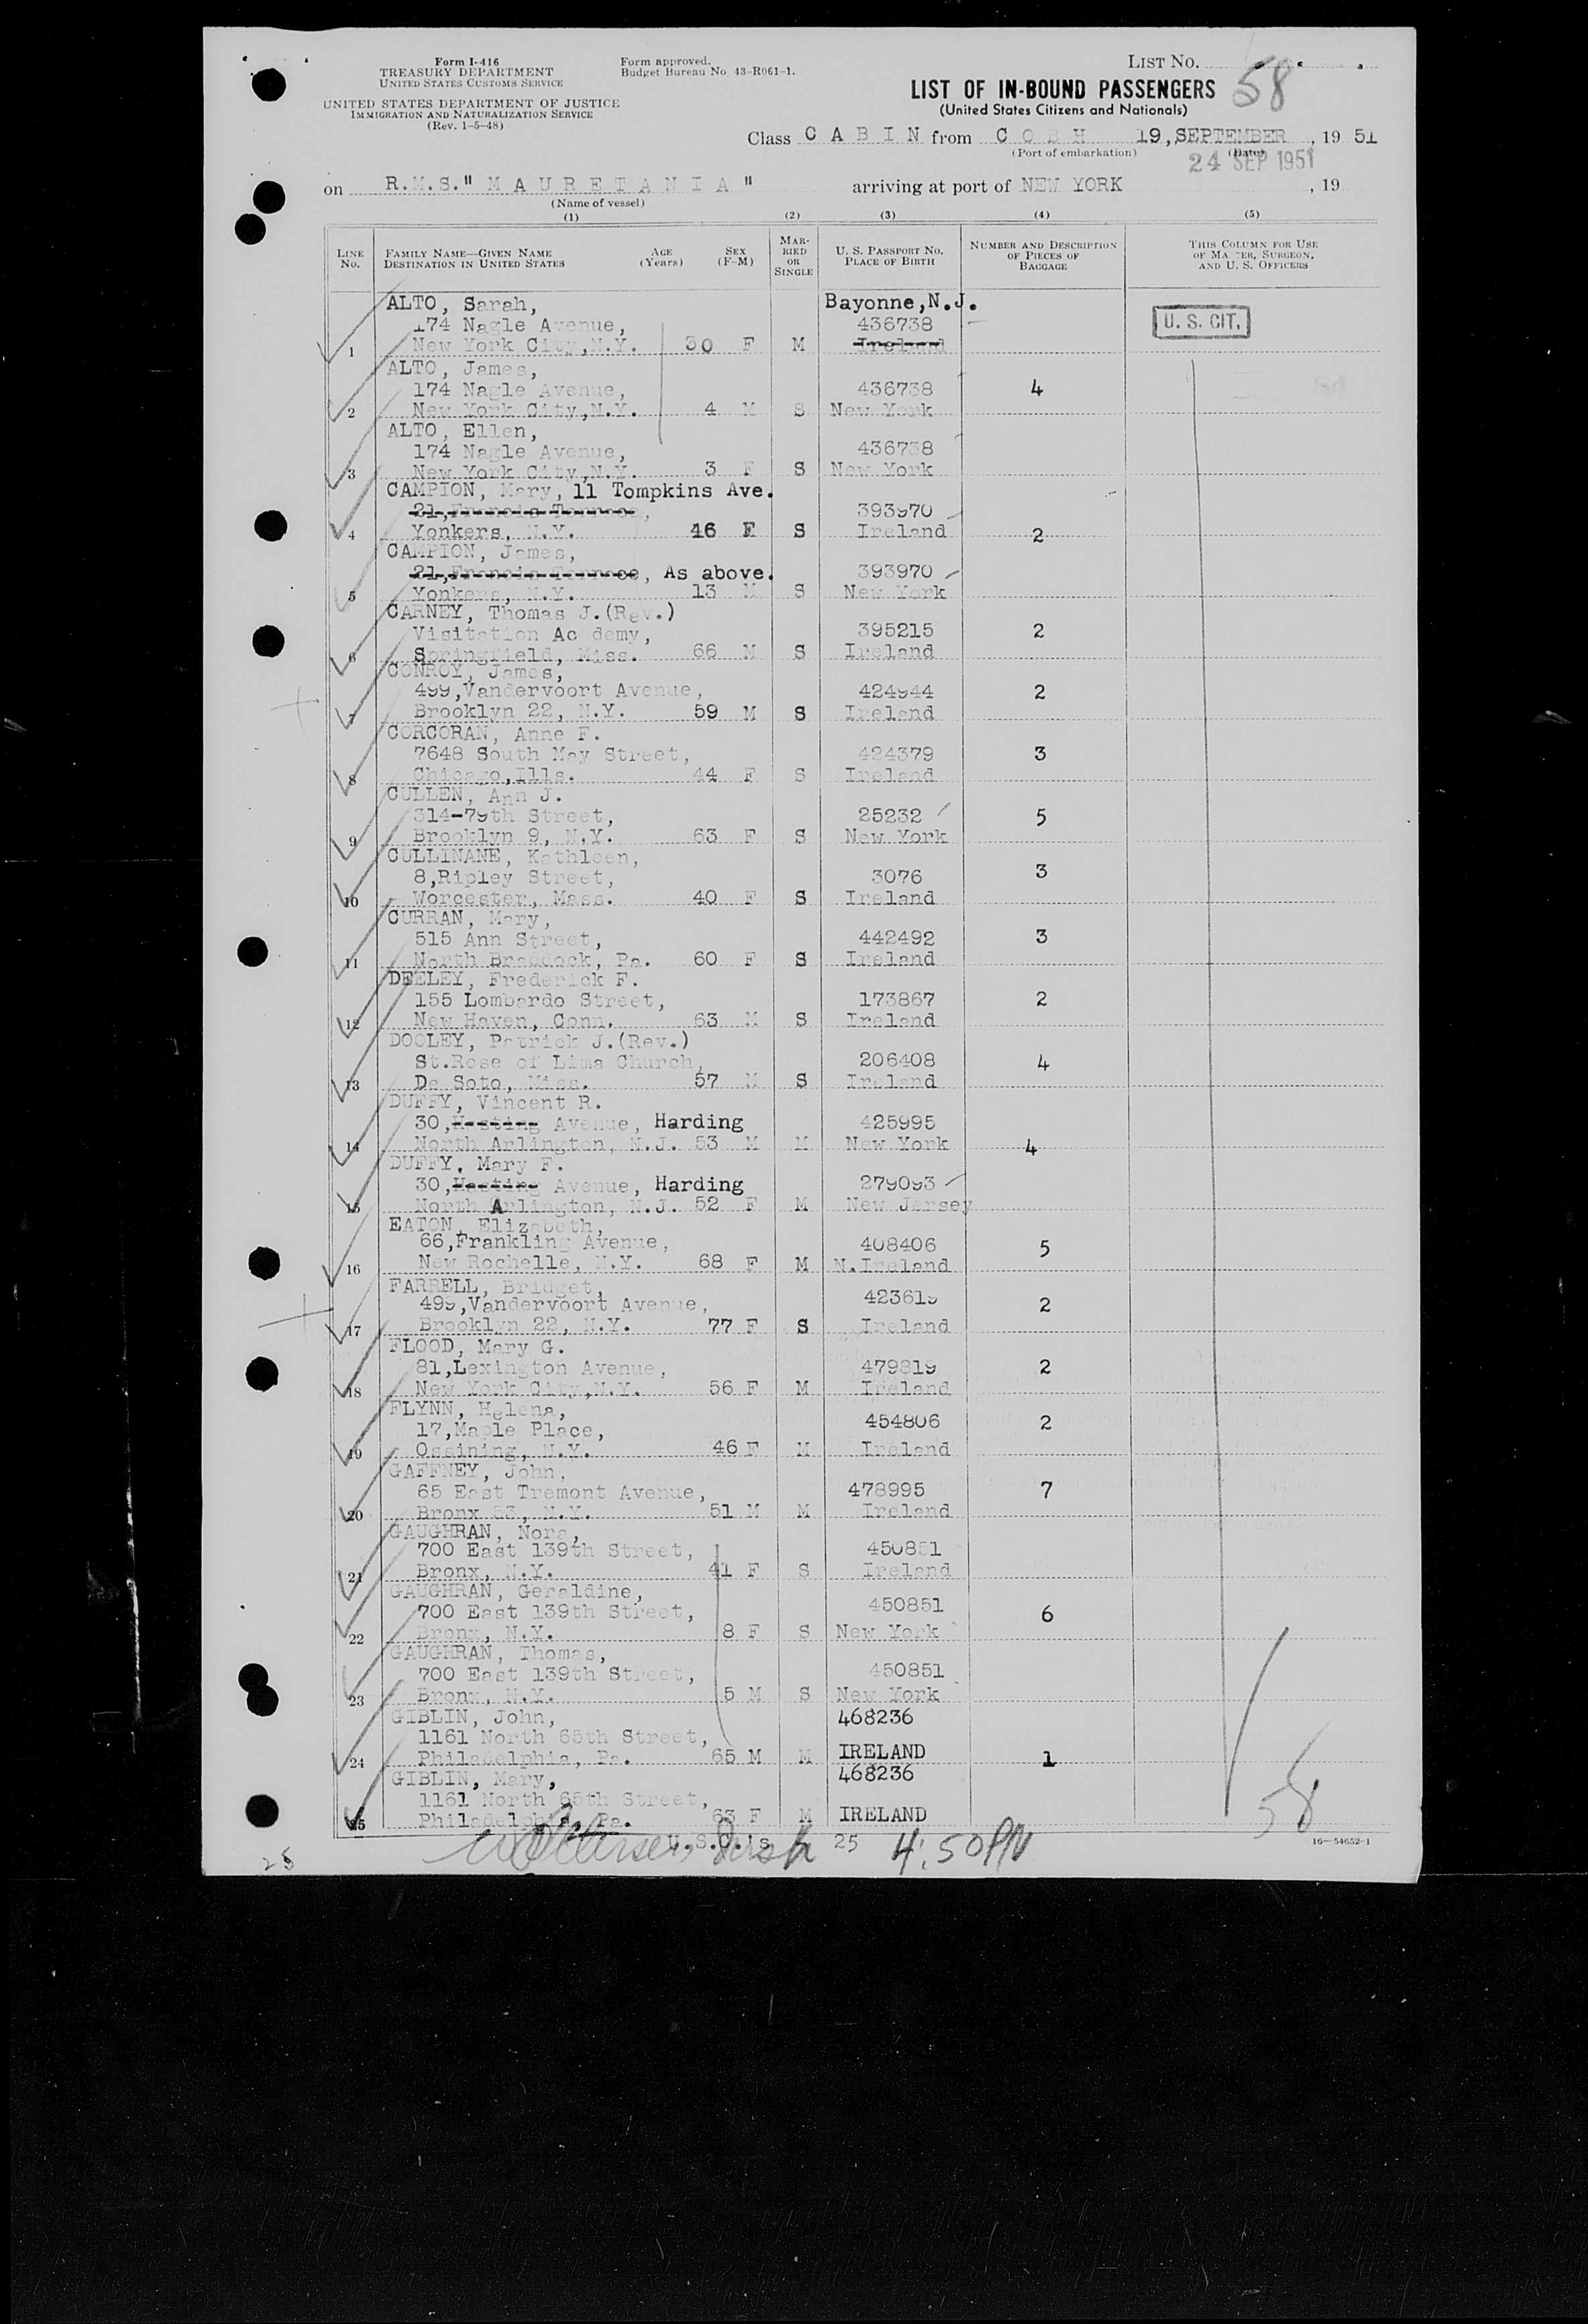 Form I-416
TREASURY DEPARTMENT
UNITED STATES CUSTOMS SERVICE
UNITED STATES DEPARTMENT OF JUSTICE
IMMIGRATION AND NATURALIZATION SERVICE
(Rev. 1-5-48)
Form approved.
Budget Bureau No. 43-R061-1.
LIST NO. 58
LIST OF IN-BOUND PASSENGERS
(United States Citizens and Nationals)
Class C A B I N from C O B H 19,SEPTEMBER, 19 51
(Port of embarkation) (Date)
24 SEP 1951
on R.M.S." M A U R E T A N I A " arriving at port of NEW YORK , 19
(Name of vessel)
(1) (2) (3) (4) (5)
LINE NO. FAMILY NAME—GIVEN NAME DESTINATION IN UNITED STATES AGE (Years) SEX (F-M) MARRIED OR SINGLE U. S. PASSPORT NO. PLACE OF BIRTH NUMBER AND DESCRIPTION OF PIECES OF BAGGAGE THIS COLUMN FOR USE OF MASTER, SURGEON, AND U. S. OFFICERS
ALTO, Sarah, Bayonne,N.J.
174 Nagle Avenue, 436738 U. S. CIT.
1 New York City,N.Y. 30 F M Ireland
ALTO, James,
174 Nagle Avenue, 436738 4
2 New York City,N.Y. 4 M S New York
ALTO, Ellen,
174 Nagle Avenue, 436738
3 New York City,N.Y. 3 F S New York
CAMPION, Mary, 11 Tompkins Ave.
21,Francis Terrace, 393970
4 Yonkers, N.Y. 46 F S Ireland 2
CAMPION, James,
21,Francis Terrace, As above. 393970
5 Yonkers, N.Y. 13 M S New York
CARNEY, Thomas J.(Rev.)
Visitation Academy, 395215 2
6 Springfield, Miss. 66 M S Ireland
CONROY, James,
499,Vandervoort Avenue, 424944 2
7 Brooklyn 22, N.Y. 59 M S Ireland
CORCORAN, Anne F.
7648 South May Street, 424379 3
8 Chicago,Ills. 44 F S Ireland
CULLEN, Ann J.
314-79th Street, 25232 5
9 Brooklyn 9, N.Y. 63 F S New York
CULLINANE, Kathleen,
8,Ripley Street, 3076 3
10 Worcester, Mass. 40 F S Ireland
CURRAN, Mary,
515 Ann Street, 442492 3
11 North Braddock, Pa. 60 F S Ireland
DEELEY, Frederick F.
155 Lombardo Street, 173867 2
12 New Haven, Conn. 63 M S Ireland
DOOLEY, Patrick J.(Rev.)
St.Rose of Lima Church, 206408 4
13 De Soto, Miss. 57 M S Ireland
DUFFY, Vincent R.
30,Hasting Avenue, Harding 425995
14 North Arlington, N.J. 53 M M New York 4
DUFFY, Mary F.
30,Hasting Avenue, Harding 279093
15 North Arlington, N.J. 52 F M New Jersey
EATON, Elizabeth,
66,Frankling Avenue, 408406 5
16 New Rochelle, N.Y. 68 F M N.Ireland
FARRELL, Bridget,
499,Vandervoort Avenue, 423619 2
17 Brooklyn 22, N.Y. 77 F S Ireland
FLOOD, Mary G.
81,Lexington Avenue, 479819 2
18 New York City,N.Y. 56 F M Ireland
FLYNN, Helena,
17,Maple Place, 454806 2
19 Ossining, N.Y. 46 F M Ireland
GAFFNEY, John,
65 East Tremont Avenue, 478995 7
20 Bronx 53, N.Y. 51 M M Ireland
GAUGHRAN, Nora,
700 East 139th Street, 450851
21 Bronx, N.Y. 41 F S Ireland
GAUGHRAN, Geraldine,
700 East 139th Street, 450851 6
22 Bronx, N.Y. 8 F S New York
GAUGHRAN, Thomas,
700 East 139th Street, 450851
23 Bronx, N.Y. 5 M S New York
GIBLIN, John, 468236
1161 North 65th Street,
24 Philadelphia, Pa. 65 M M IRELAND 1
GIBLIN, Mary, 468236
1161 North 65th Street,
25 Philadelphia, Pa. 63 F M IRELAND 58
U.S.C.'s 25 4:50PM
16—54652-1
25